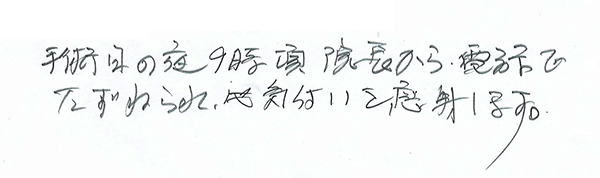 手術日の夜9時頃院長から、電話で
たずねられ、お気付いを感謝します。